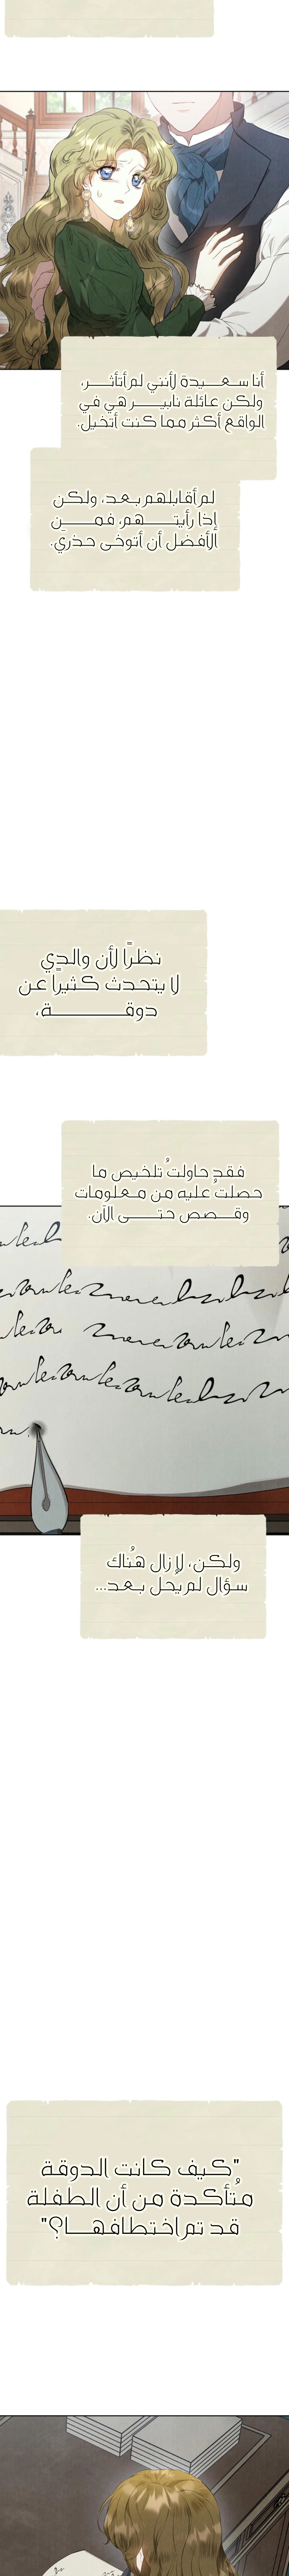 أنا سعيدة لأنني لم أتأثر،
ولكن عائلة نابير هي في
الواقع أكثر مما كنت أتخيل.
لم أقابلهم بعد، ولكن
إذا رأيتهم، فمن
الأفضل أن أتوخى حذري.
نظرًا لأن والدي
لا يتحدث كثيرًا عن
دوقة،
فقد حاولتُ تلخيص ما
حصلتُ عليه من معلومات
وقصص حتى الآن.
ولكن، لا زال هُناك
سؤال لم يُحل بعد...
"كيف كانت الدوقة
مُتأكدة من أن الطفلة
قد تم اختطافها؟"